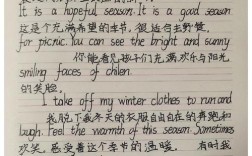 It is a hopeful season. It is a good season
这是个充满希望的季节,很适合去野餐。
for picnic. You can see the bright and sunny
你能看见孩子们充满欢乐与阳光
smiling faces of chilen.
的笑脸。
I take off my winter clothes to run and
我脱下我冬天的衣服自由自在的奔跑和
laugh. Feel the warmth of this season. Sometimes
欢笑。感受着这个季节的温暖。 有时我